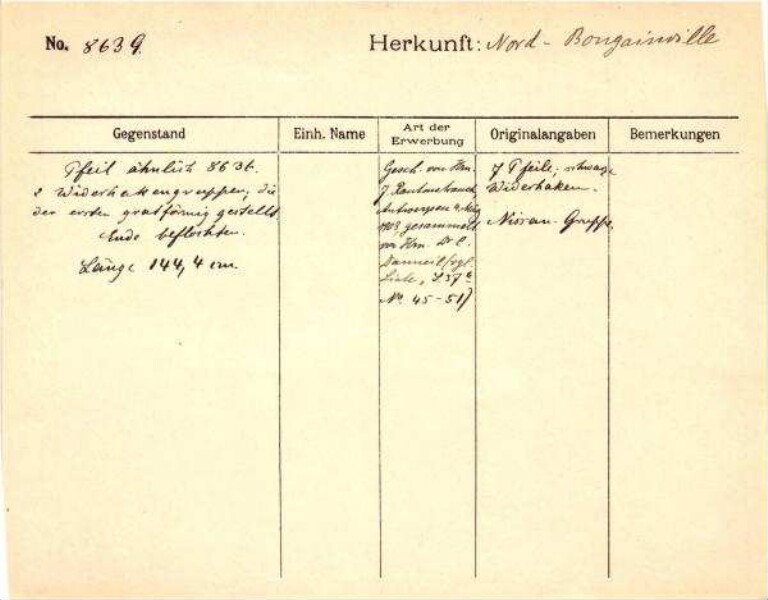 No. 8639.
Herkunft: Nord-Bougainville
Gegenstand
Einh. Name
Art der Erwerbung
Originalangaben
Bemerkungen
Pfeil ähnlich 8636.
2 Widerhakengruppen; die
der ersten gratförmig gestellt.
Ende beflochten.
Länge 144,4 cm.
Gesch. von Hrn.
J. Rautenstrauch
Antwerpen
gesammelt
von Hrn. Dr C.
Danneil (vgl.
Liste, S.
No. 45-51)
7 Pfeile, schwarze
Widerhaken.
Nissan-Gruppe.